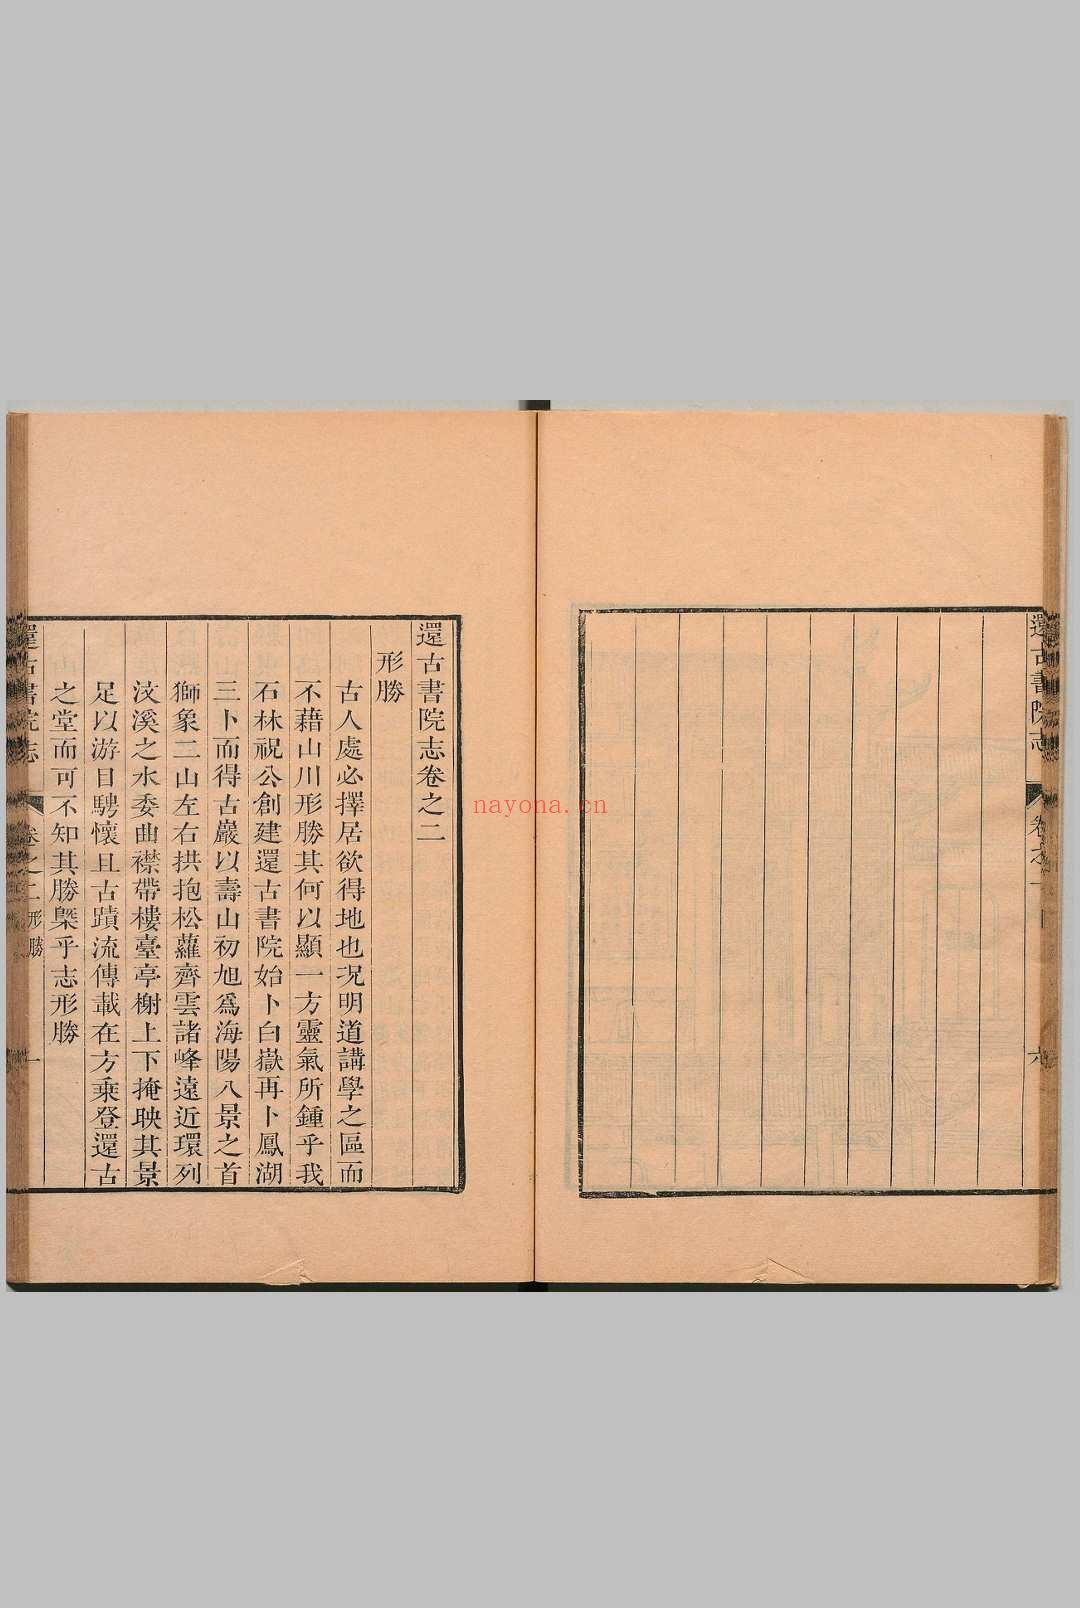 還古書院志
卷之一
六
還古書院志卷之二
形勝
古人處必擇居欲得地也况明道講學之區而
不藉山川形勝其何以顯一方靈氣所鍾乎我
石林祝公創建還古書院始卜白嶽再卜鳳湖
三卜而得古巖以壽山初旭爲海陽八景之首
獅象二山左右拱抱松蘿齊雲諸峰遠近環列
汶溪之水委曲襟帶樓臺亭榭上下掩映其景
足以游目騁懷且古蹟流傳載在方乘登還古
之堂而可不知其勝槩乎志形勝
還古書院志
卷之二形勝
一
nayona.cn